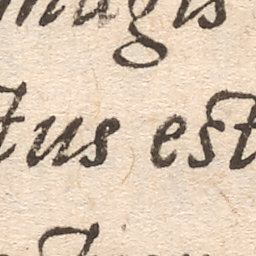 magis
tus est